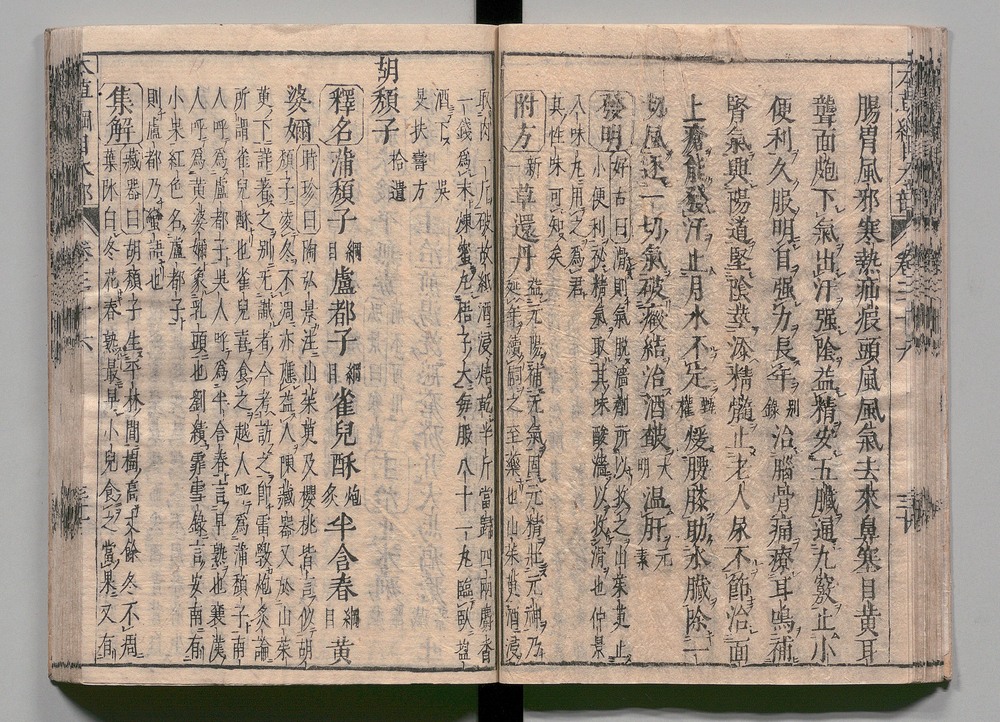 腸胃風邪寒熱疝瘕頭風風氣去來鼻塞目黃耳
聾面皰下氣出汗强陰益精安五臟通九竅止小
便利久服明目强力長年別錄治腦骨痛療耳鳴補
腎氣興陽道堅陰莖添精髓止老人尿不節治面
上瘡能發汗止月水不定甄權煖腰膝助水臟除一
切風逐一切氣破癥結治酒皶大明溫肝元素
發明 好古曰滑則氣脫澀劑所以收之山茱萸止
小便利秘精氣取其味酸澀以收滑也仲景
八味丸用之爲君
其性味可知矣
附方 新一 草還丹 益元陽補元氣固元精壯元神乃
延年續嗣之至藥也山茱萸酒浸
取肉一斤破故紙酒浸焙乾半斤當歸四兩麝香
一錢爲末煉蜜丸梧子大每服八十一丸臨臥鹽
酒下吳
旻扶壽方
胡頹子 拾遺
釋名 蒲頹子綱目盧都子綱目雀兒酥炮炙半含春綱目黃
婆嬭 時珍曰陶弘景注山茱萸及櫻桃皆言似胡
頹子凌冬不凋亦應益人陳藏器又於山茱
萸下詳著之別无識者今考訪之即雷斅炮炙論
所謂雀兒酥也雀兒喜食之越人呼爲蒲頹子南
人呼爲盧都子吳人呼爲半含春言早熟也襄漢
人呼爲黃婆嬭象乳頭也劉績霏雪錄言安南有
小果紅色名盧都子
則盧都乃蠻語也
集解 藏器曰胡頹子生平林間樹高丈餘冬不凋
葉陰白冬花春熟最早小兒食之當果又有
本草綱目木部 卷三十六